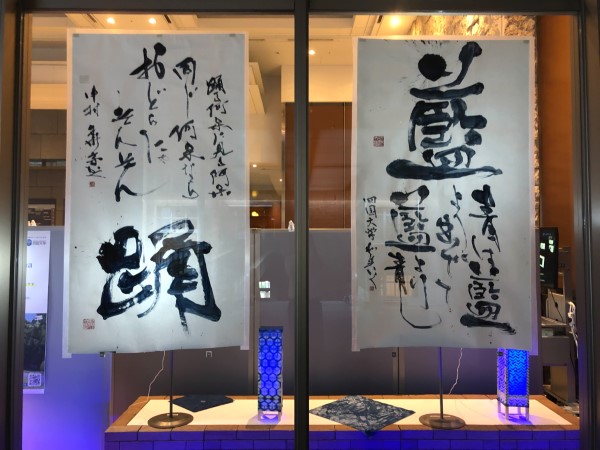 藍
青は藍
より出でて
藍より青し
四国大学
踊る阿呆に見る阿呆
同じ阿呆なら
おどらにゃ
そんそん
踊